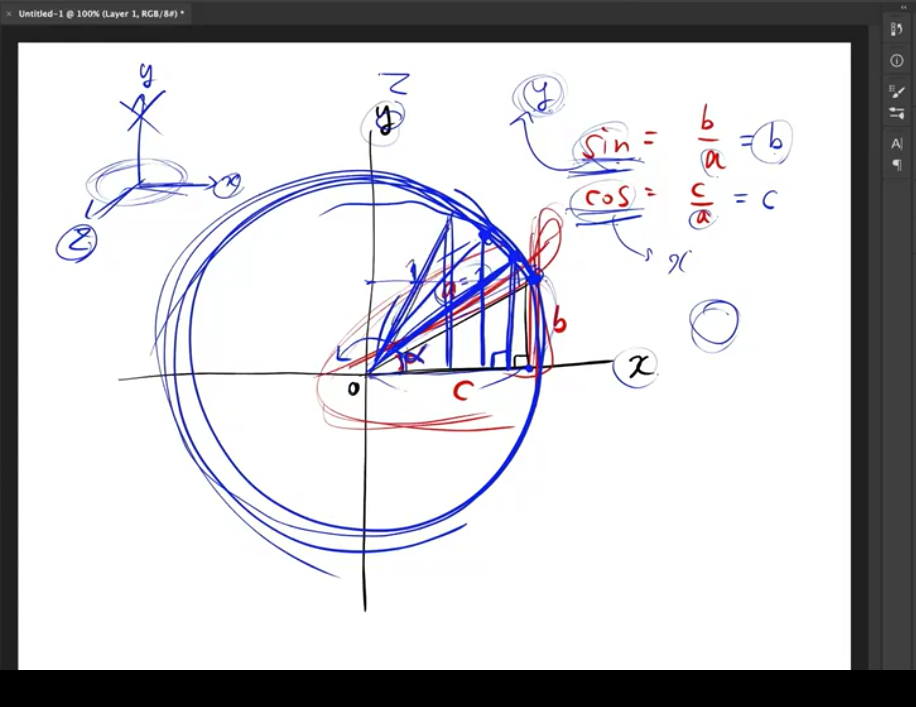 Untitled-1 @ 100% (Layer 1, RGB/8#) *
y
x
z
z
y
y
sin = b/a = b
cos = c/a = c
x
1
a = 1
b
α
o
c
x
A|
¶